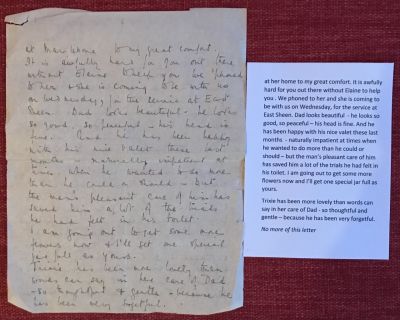 at her home to my great comfort.
It is awfully hard for you out there
without Elaine to help you. We phoned
to her & she is coming to be with us
on Wednesday, for the service at East
Sheen. Dad looks beautiful - he looks
so good, so peaceful - his head is
fine. And he has been happy
with his nice valet these last
months - naturally impatient at
times when he wanted to do more
than he could or should - but
the man's pleasant care of him has
saved him a lot of the trials
he had felt in his toilet.
I am going out to get some more
flowers now & I'll get one special
jar full as yours.
Trixie has been more lovely than
words can say in her care of Dad
- so thoughtful & gentle - because he
has been very forgetful.
at her home to my great comfort. It is awfully
hard for you out there without Elaine to help
you . We phoned to her and she is coming to
be with us on Wednesday, for the service at
East Sheen. Dad looks beautiful - he looks so
good, so peaceful – his head is fine. And he
has been happy with his nice valet these last
months. - naturally impatient at times when
he wanted to do more than he could or
should – but the man's pleasant care of him
has saved him a lot of the trials he had felt in
his toilet. I am going out to get some more
flowers now and I'll get one special jar full as
yours.
Trixie has been more lovely than words can
say in her care of Dad - so thoughtful and
gentle – because he has been very forgetful.
No more of this letter